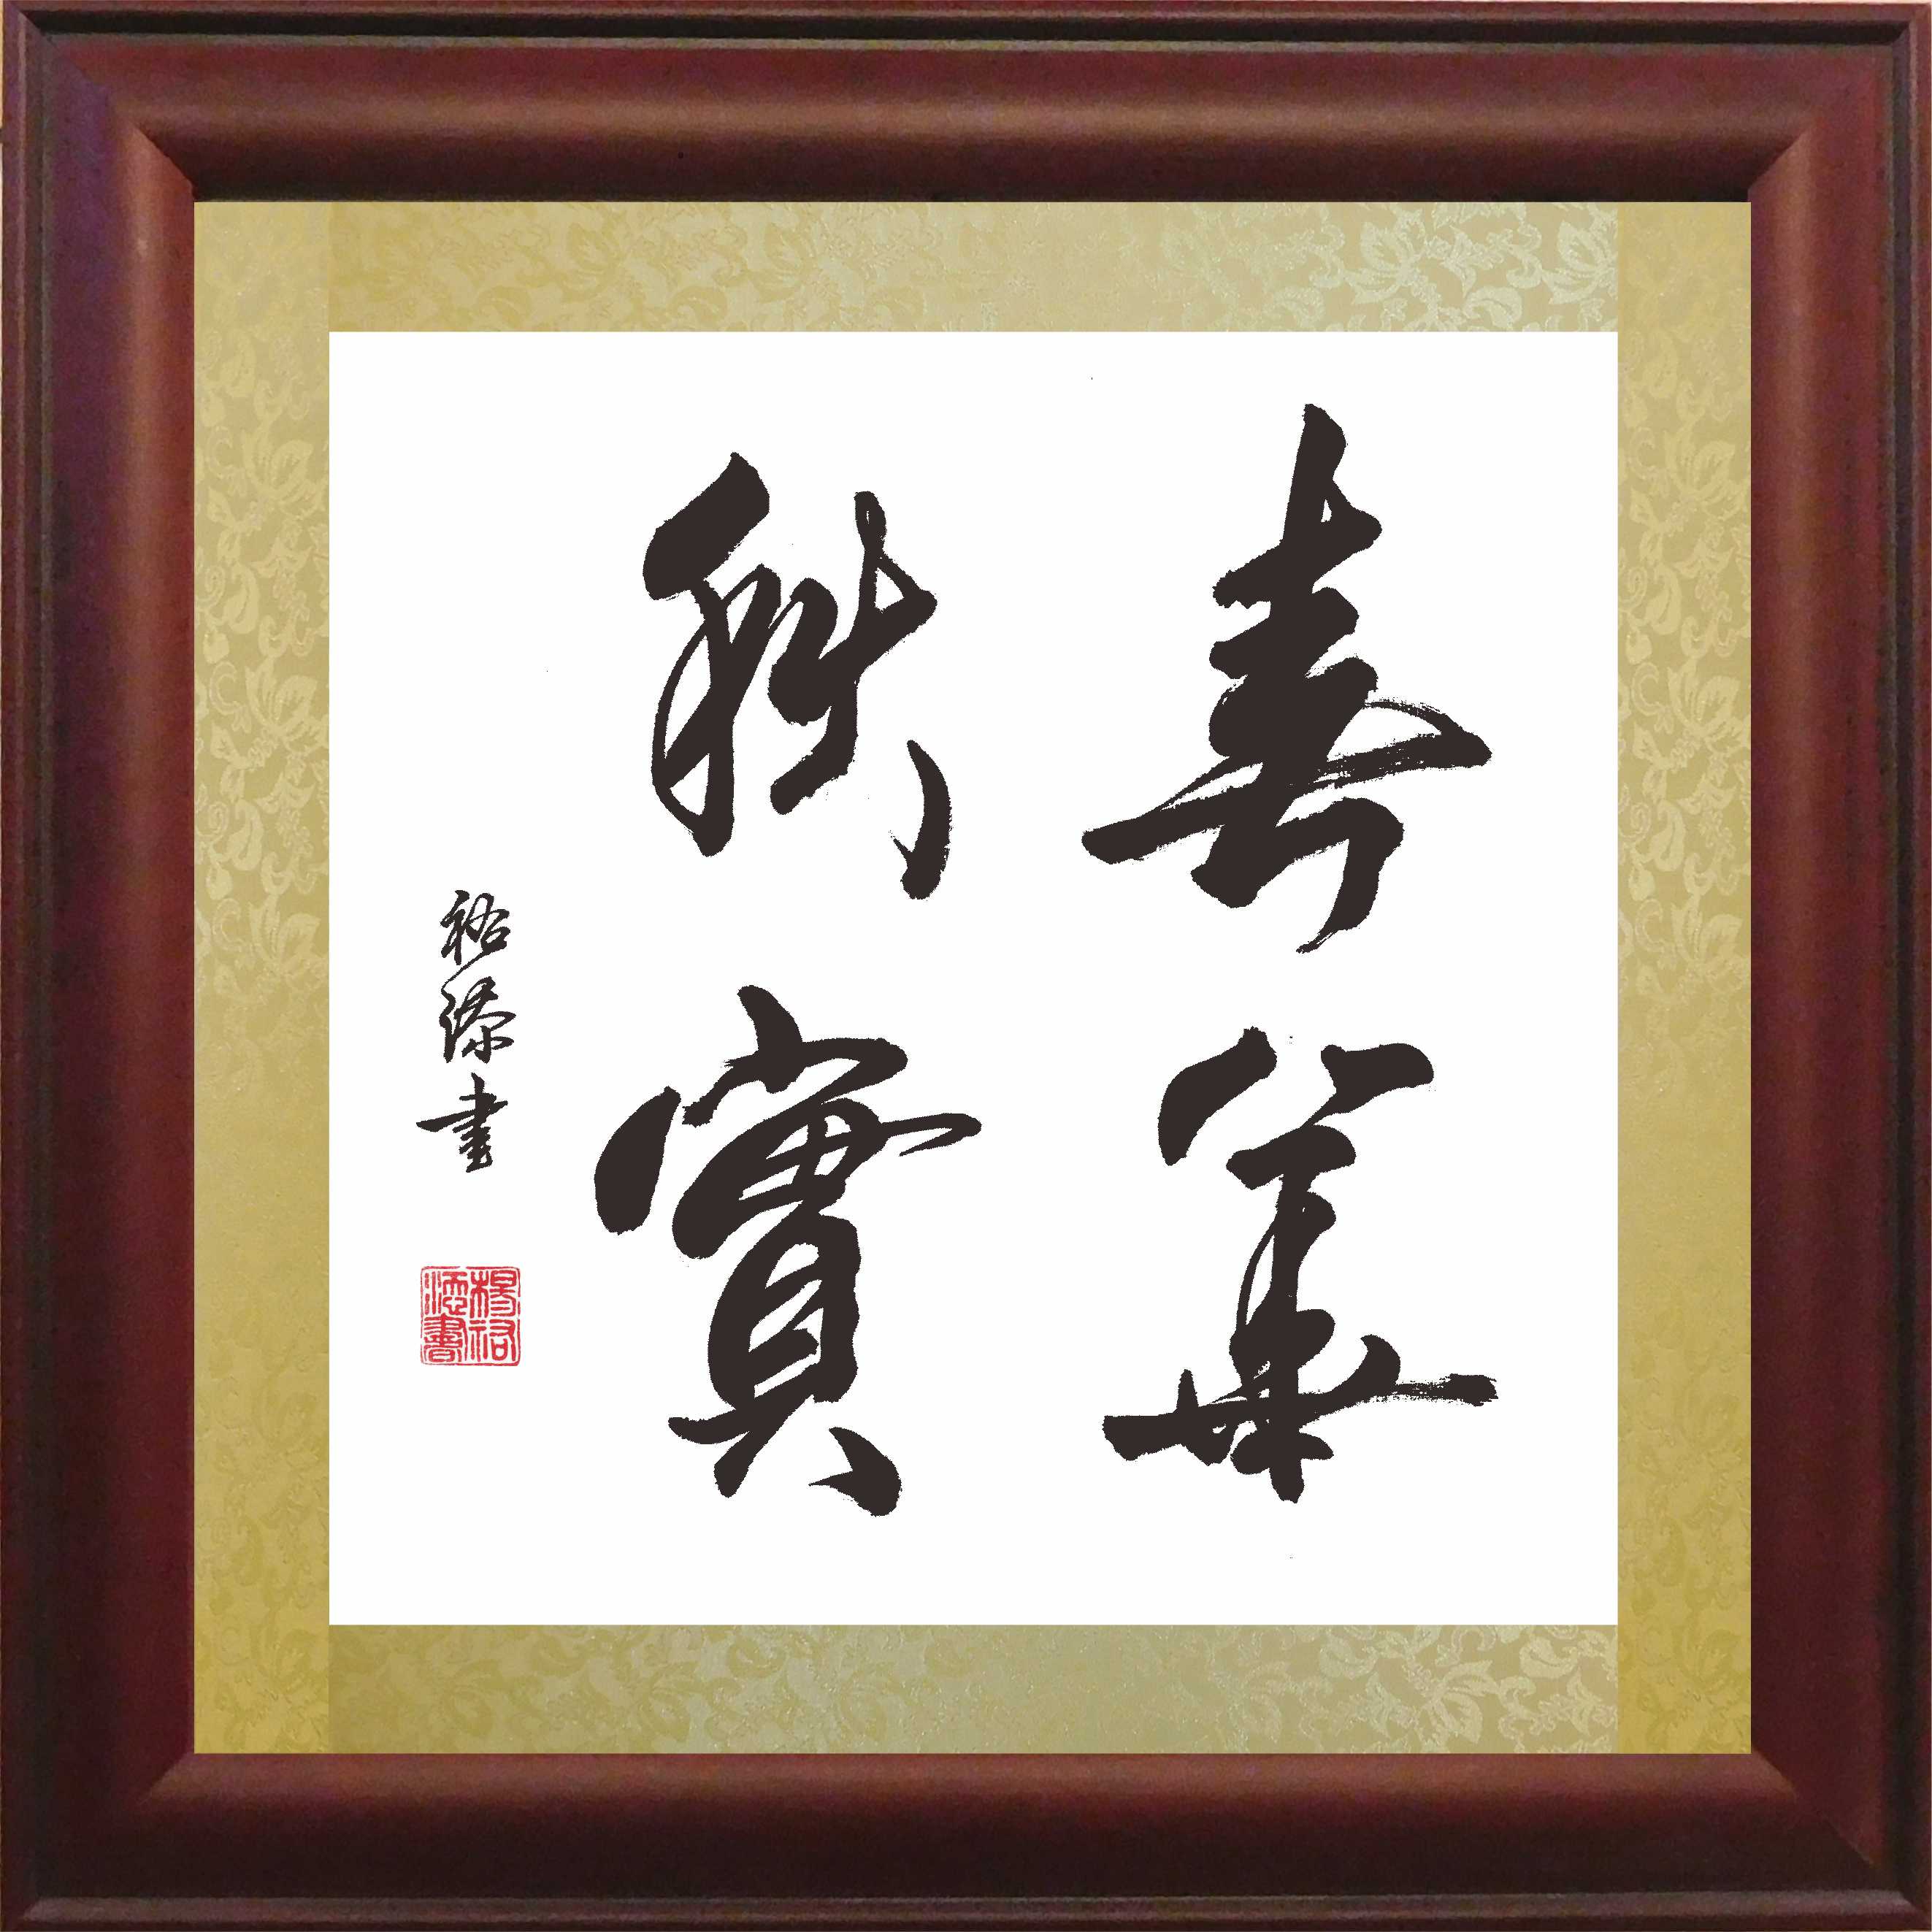 春華
秋實
裕添書
楊裕
添書